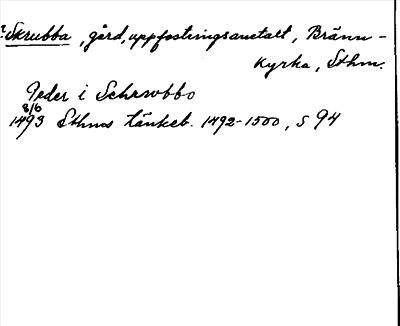 ? Skrubba, gård, uppfostringsanstalt, Bränn-
kyrka, Sthm.
Peder i Schrwbbo
8/6
1493 Sthms tänkeb. 1492-1500, s 94